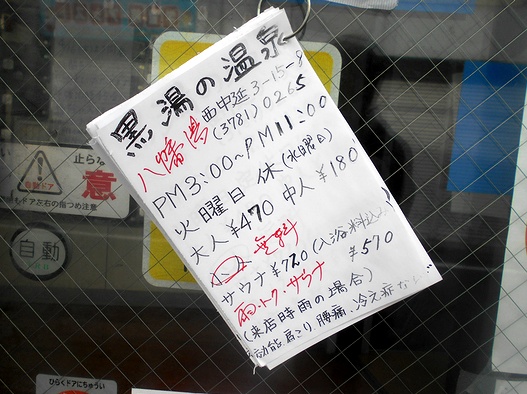 黒湯の温泉
八幡湯 西中延3-15-8
(3781)0265
PM3:00~PM11:00
火曜日 休(水曜日)
大人¥470 中人¥180
無料
サウナ¥720(入浴料込み)
雨・トク・サウナ ¥570
(来店時雨の場合)
効能 肩こり 腰痛、冷え症な
止らな
自動ドア
注意
もドア左右の指つめ注意
自動
ひらくドアにちゅうい